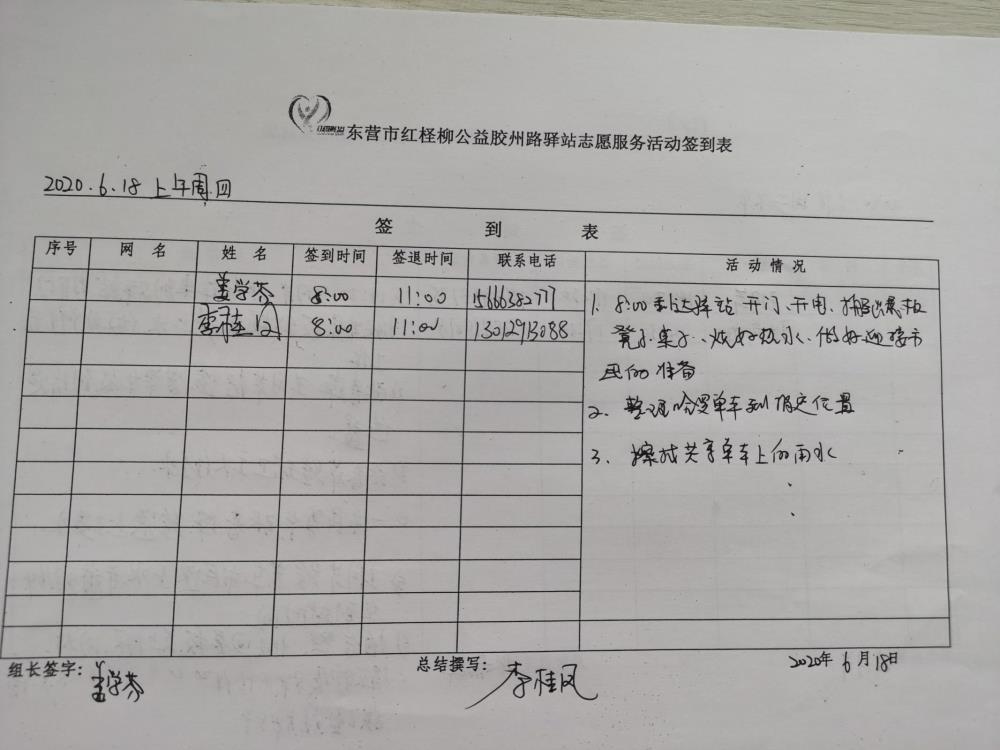 东营市红柽柳公益胶州路驿站志愿服务活动签到表
2020.6.18 上午周四
签 到 表
序号 网 名 姓 名 签到时间 签退时间 联系电话 活 动 情 况
孟学芬 8:00 11:00 15666382777
李桂凤 8:00 11:00 13012913088
1. 8:00到达驿站 开门、开电、摆
凳子、桌子、烧好热水、做好迎接市
民的准备
2. 整理哈罗单车到指定位置
3. 擦拭共享单车上的雨水
组长签字: 孟学芬 总结撰写: 李桂凤 2020年6月18日